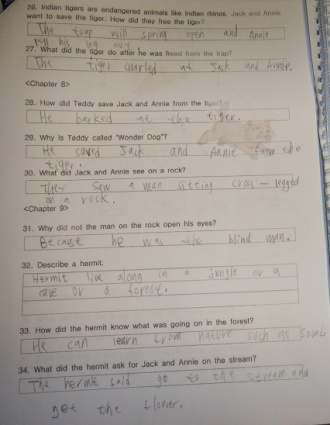 26. Indian tigers are endangered animals like Indian rhinos. Jack and Annie
want to save the tiger. How did they free the tiger?
The trap will spring open and Annie
pull his leg out.
27. What did the tiger do after he was freed from the trap?
The tiger snarled at Jack and Annie.
<Chapter 8>
28. How did Teddy save Jack and Annie from the tiger?
He barked at the tiger.
29. Why is Teddy called "Wonder Dog"?
He saved Jack and Annie from the
tiger.
30. What did Jack and Annie see on a rock?
They saw a man sitting cross-legged
on a rock.
<Chapter 9>
31. Why did not the man on the rock open his eyes?
Because he was the blind man.
32. Describe a hermit.
Hermit live along in a Jungle or a
cave or a forest.
33. How did the hermit know what was going on in the forest?
He can learn from nature such as sounds
34. What did the hermit ask for Jack and Annie on the stream?
The hermit said go to the stream and
get the flower.